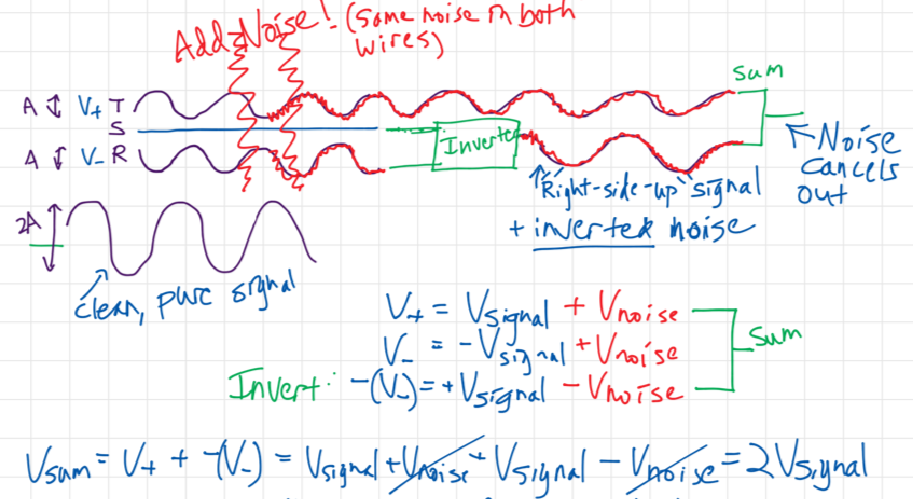 Add Noise! (Same noise in both
wires)
A V+ T
S
A V- R
Inverter
sum
Noise
cancels
out
"Right-side-up" signal
+ inverted noise
2A
clean, pure signal
V+ = Vsignal + Vnoise
V- = -Vsignal + Vnoise
Invert: -(V-) = +Vsignal - Vnoise
sum
Vsum = V+ + -(V-) = Vsignal + Vnoise + Vsignal - Vnoise = 2Vsignal